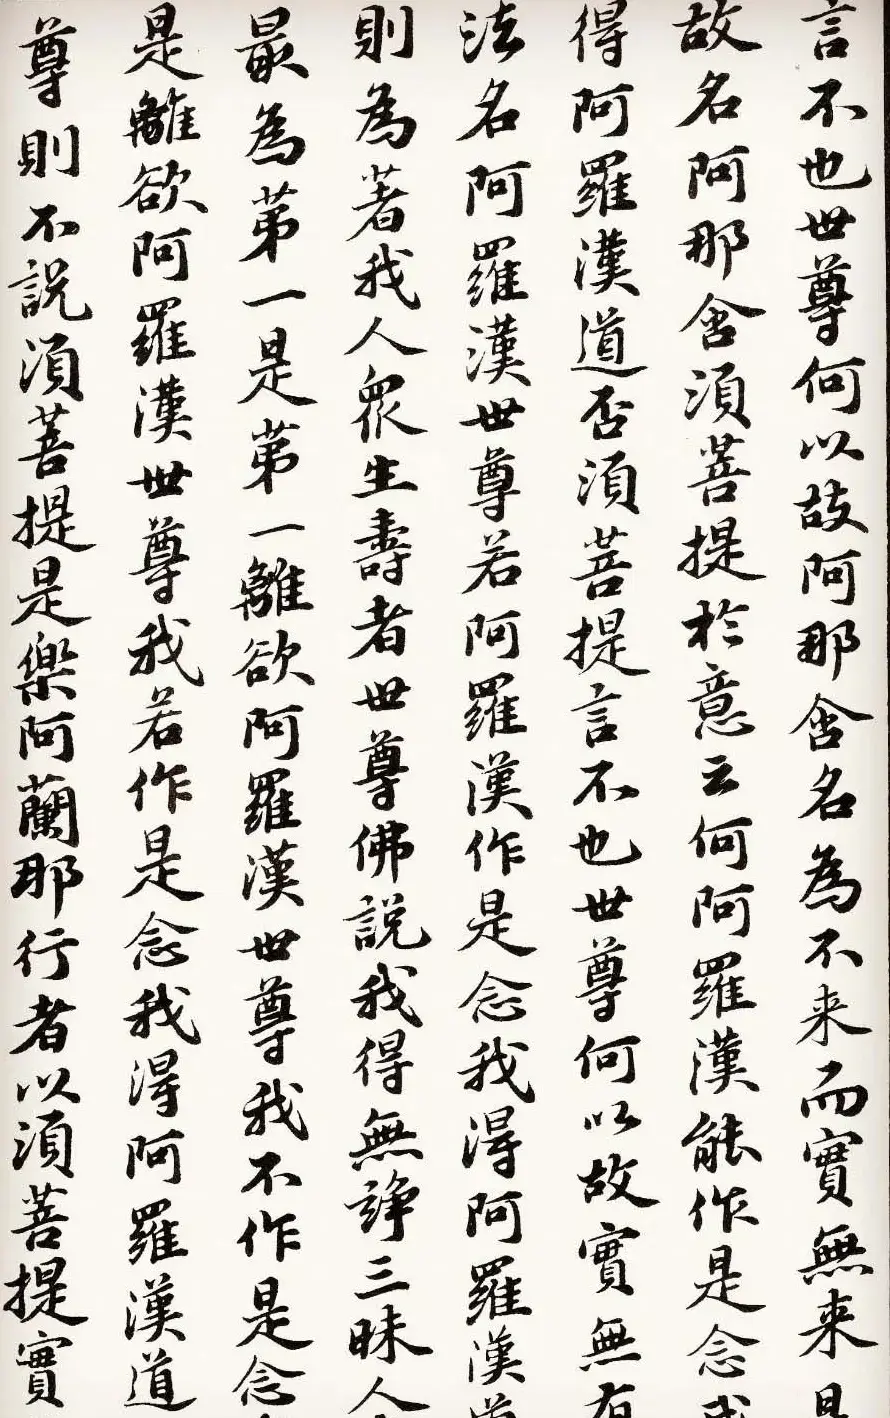 言不也世尊何以故阿那含名為不来而實無来是
故名阿那含須菩提於意云何阿羅漢能作是念我
得阿羅漢道否須菩提言不也世尊何以故實無有
法名阿羅漢世尊若阿羅漢作是念我得阿羅漢道
則為著我人眾生壽者世尊佛說我得無諍三昧人
最為苐一是苐一離欲阿羅漢世尊我不作是念
是離欲阿羅漢世尊我若作是念我得阿羅漢道
尊則不說須菩提是樂阿蘭那行者以須菩提實